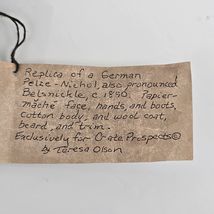 Replica of a German
Pelze-Nichol, also pronounced
Belsnickle, c 1850. Papier-
mâché face, hands, and boots,
cotton body, and wool coat,
beard, and trim.
Exclusively for O-ate Prospects©
by Teresa Olson